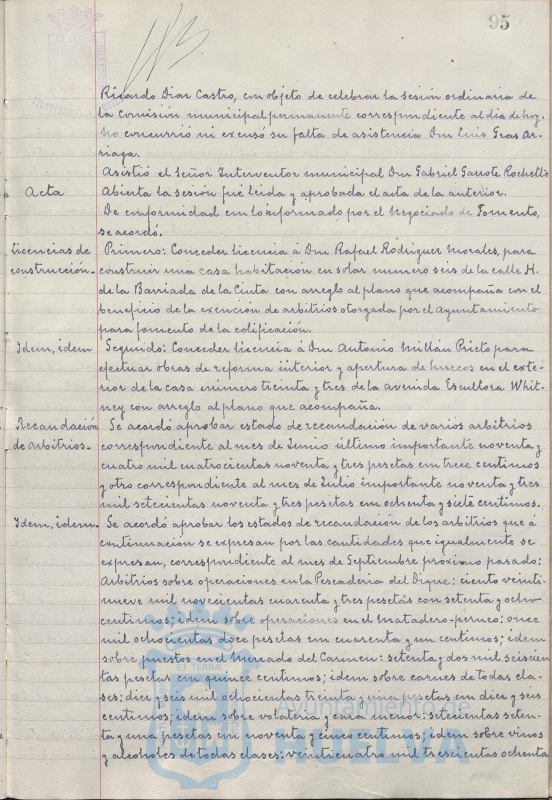 95
Ricardo Diaz Castro, con objeto de celebrar la sesión ordinaria de
la comisión municipal permanente correspondiente al dia de hoy.
No concurrió ni excusó su falta de asistencia Don Luis Gras Ar-
riaga.
Asistió el Señor Interventor municipal Don Gabriel Garrote Rochetto
Acta
Abierta la sesión fué leida y aprobada el acta de la anterior.
De conformidad con lo informado por el Negociado de Fomento,
se acordó.
Licencias de
construcción.-
Primero: Conceder licencia á Don Rafael Rodriguez Morales, para
construir una casa habitación en solar número seis de la calle H.
de la Barriada de la Cinta con arreglo al plano que acompaña con el
beneficio de la exención de arbitrios otorgada por el Ayuntamiento
para fomento de la edificación.
Idem, idem
Segundo: Conceder licencia á Don Antonio Millán Prieto para
efectuar obras de reforma interior y apertura de huecos en el exte-
rior de la casa número treinta y tres de la avenida Escultora Whit-
ney con arreglo al plano que acompaña.
Recaudación
de arbitrios.-
Se acordó aprobar estado de recaudación de varios arbitrios
correspondiente al mes de Junio último importante noventa y
cuatro mil cuatrocientas noventa y tres pesetas con trece centimos
y otro correspondiente al mes de Julio importante noventa y tres
mil setecientas noventa y tres pesetas con ochenta y siete centimos.
Idem, idem.-
Se acordó aprobar los estados de recaudación de los arbitrios que á
continuación se expresan por las cantidades que igualmente se
expresan, correspondiente al mes de Septiembre próximo pasado:
Arbitrios sobre operaciones en la Pescaderia del Dique: ciento veinti-
nueve mil novecientas cuarenta y tres pesetas con setenta y ocho
centimos; idem sobre operaciones en el Matadero-porcuno: once
mil ochocientas doce pesetas con cuarenta y un centimos; idem
sobre puestos en el Mercado del Carmen: setenta y dos mil seiscien-
tas pesetas con quince centimos; idem sobre carnes de todas cla-
ses: diez y seis mil ochocientas treinta y una pesetas con diez y seis
centimos; idem sobre volateria y caza menor: setecientas seten-
ta y una pesetas con noventa y cinco centimos; idem sobre vinos
y alcoholes de todas clases: veinticuatro mil trescientas ochenta
Ayuntamiento de
HUELVA